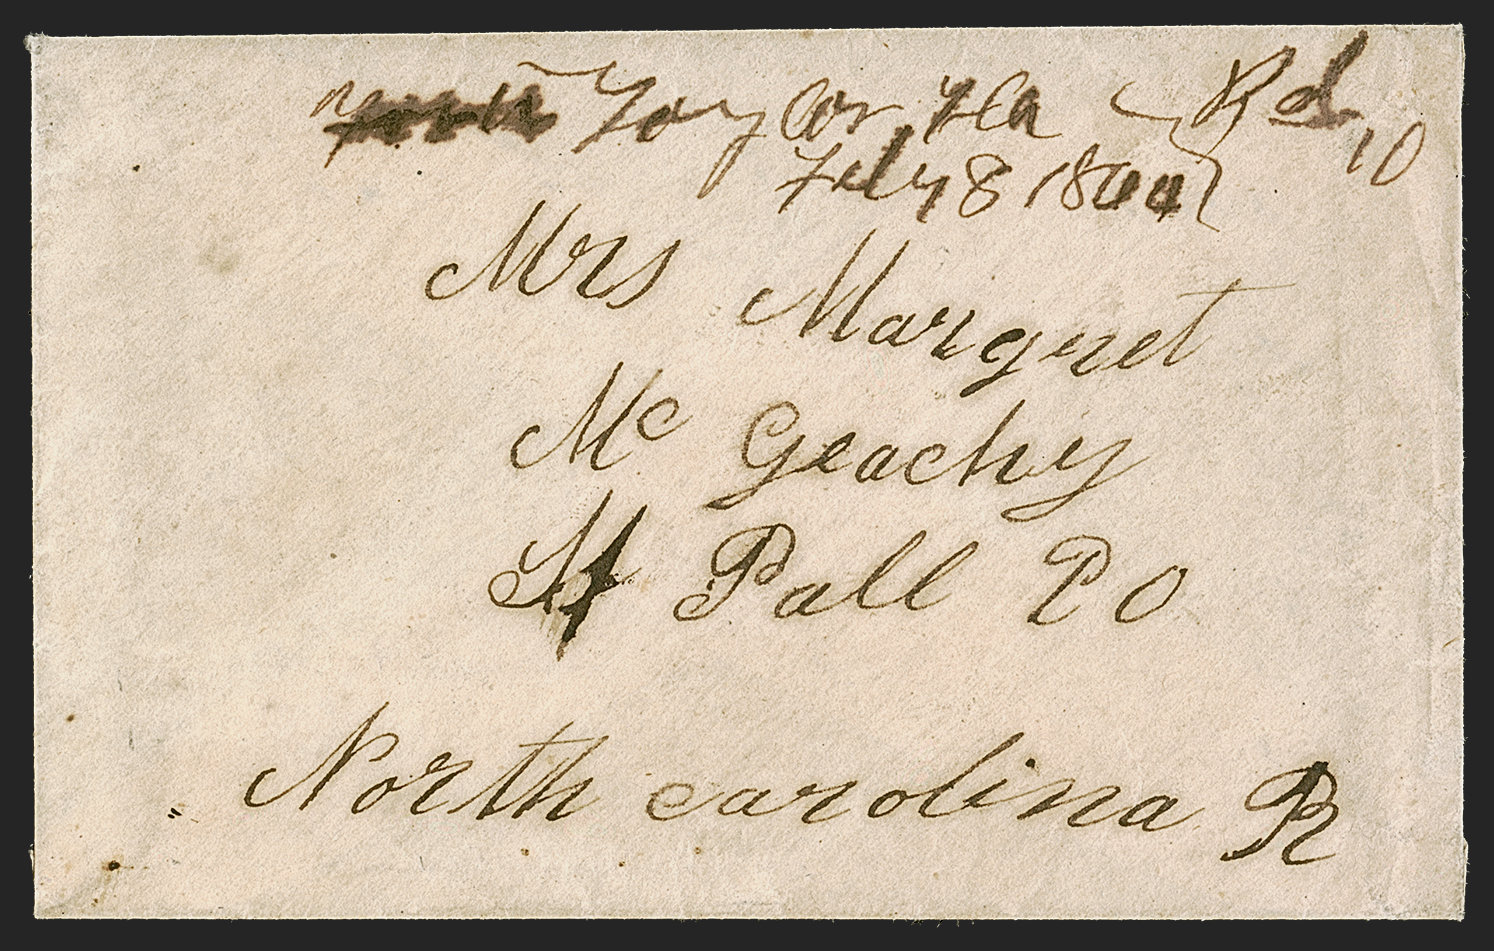 Taylor, Fla } Pd 10
Feby 8 1864
Mrs Margret
Mc Geachy
St Pall PO
North carolina R